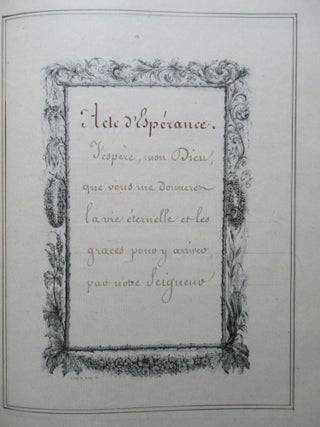 Acte d'Espérance.
J'espère, mon Dieu,
que vous me donnerez
la vie éternelle et les
graces pour y arriver,
par notre Seigneur